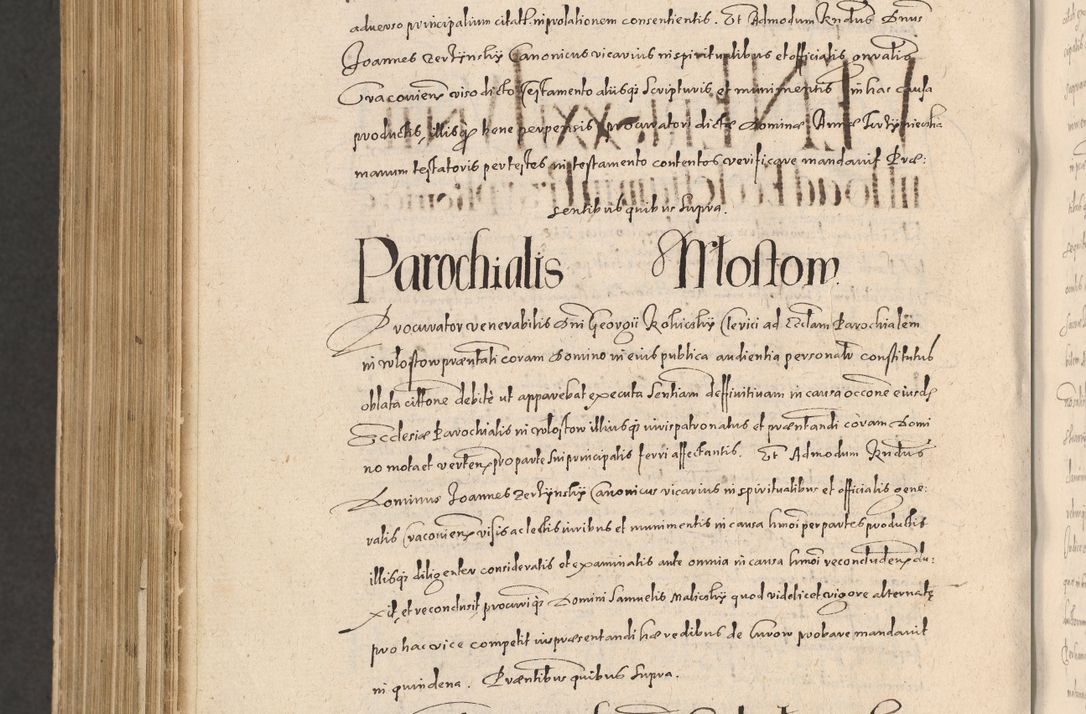 aduerso principalium citat. in prolationem consentientis. Et Admodum Rndus Dnus
Joannes Zerzÿnskÿ Canonicus vicarius in spiritualibus et officialis gnralis
Cracouien viso dicto Testamento aliisqz Scripturis et munimentis in hac causa
productis, illisqz bene perpensis procuratori dictæ Dominæ Annæ
manum testatoris per testes in testamento contentos verificare mandauit Præ:
sentibus quibus supra.
Parochialis Wlostow.
Procurator venerabilis Dni Georgii Clerici ad Ecclam Parochialem
in wlostow præntati coram Domino in eius publica audientia personalr constitutus
oblata cittone debite ut apparebat executa Sentiam deffinitiuam in causa occone eiusdz
Ecclesiæ Parochialis in wlostow illiusqz iurispatronatus et præntandi coram Domi
no mota et verten pro parte sui principalis ferri affectantis. Et Admodum Rndus
Dominus Joannes Zerzÿnskÿ Canonicus vicarius in spiritualibus et officialis gene:
ralis Cracouien visis ac lectis iuribus et munimentis in causa hmoi per partes productis
illisqz diligenter consideratis et examinatis ante omnia in causa hmoi reconcludend du:
xit, et reconclusit, procuriqz Domini Samuelis Maliczkÿ quod videlicet vigore alternatæ
pro hac vice competit ius præsentandi hæredibus de probare mandauit
in quindena. Præntibus quibus supra.